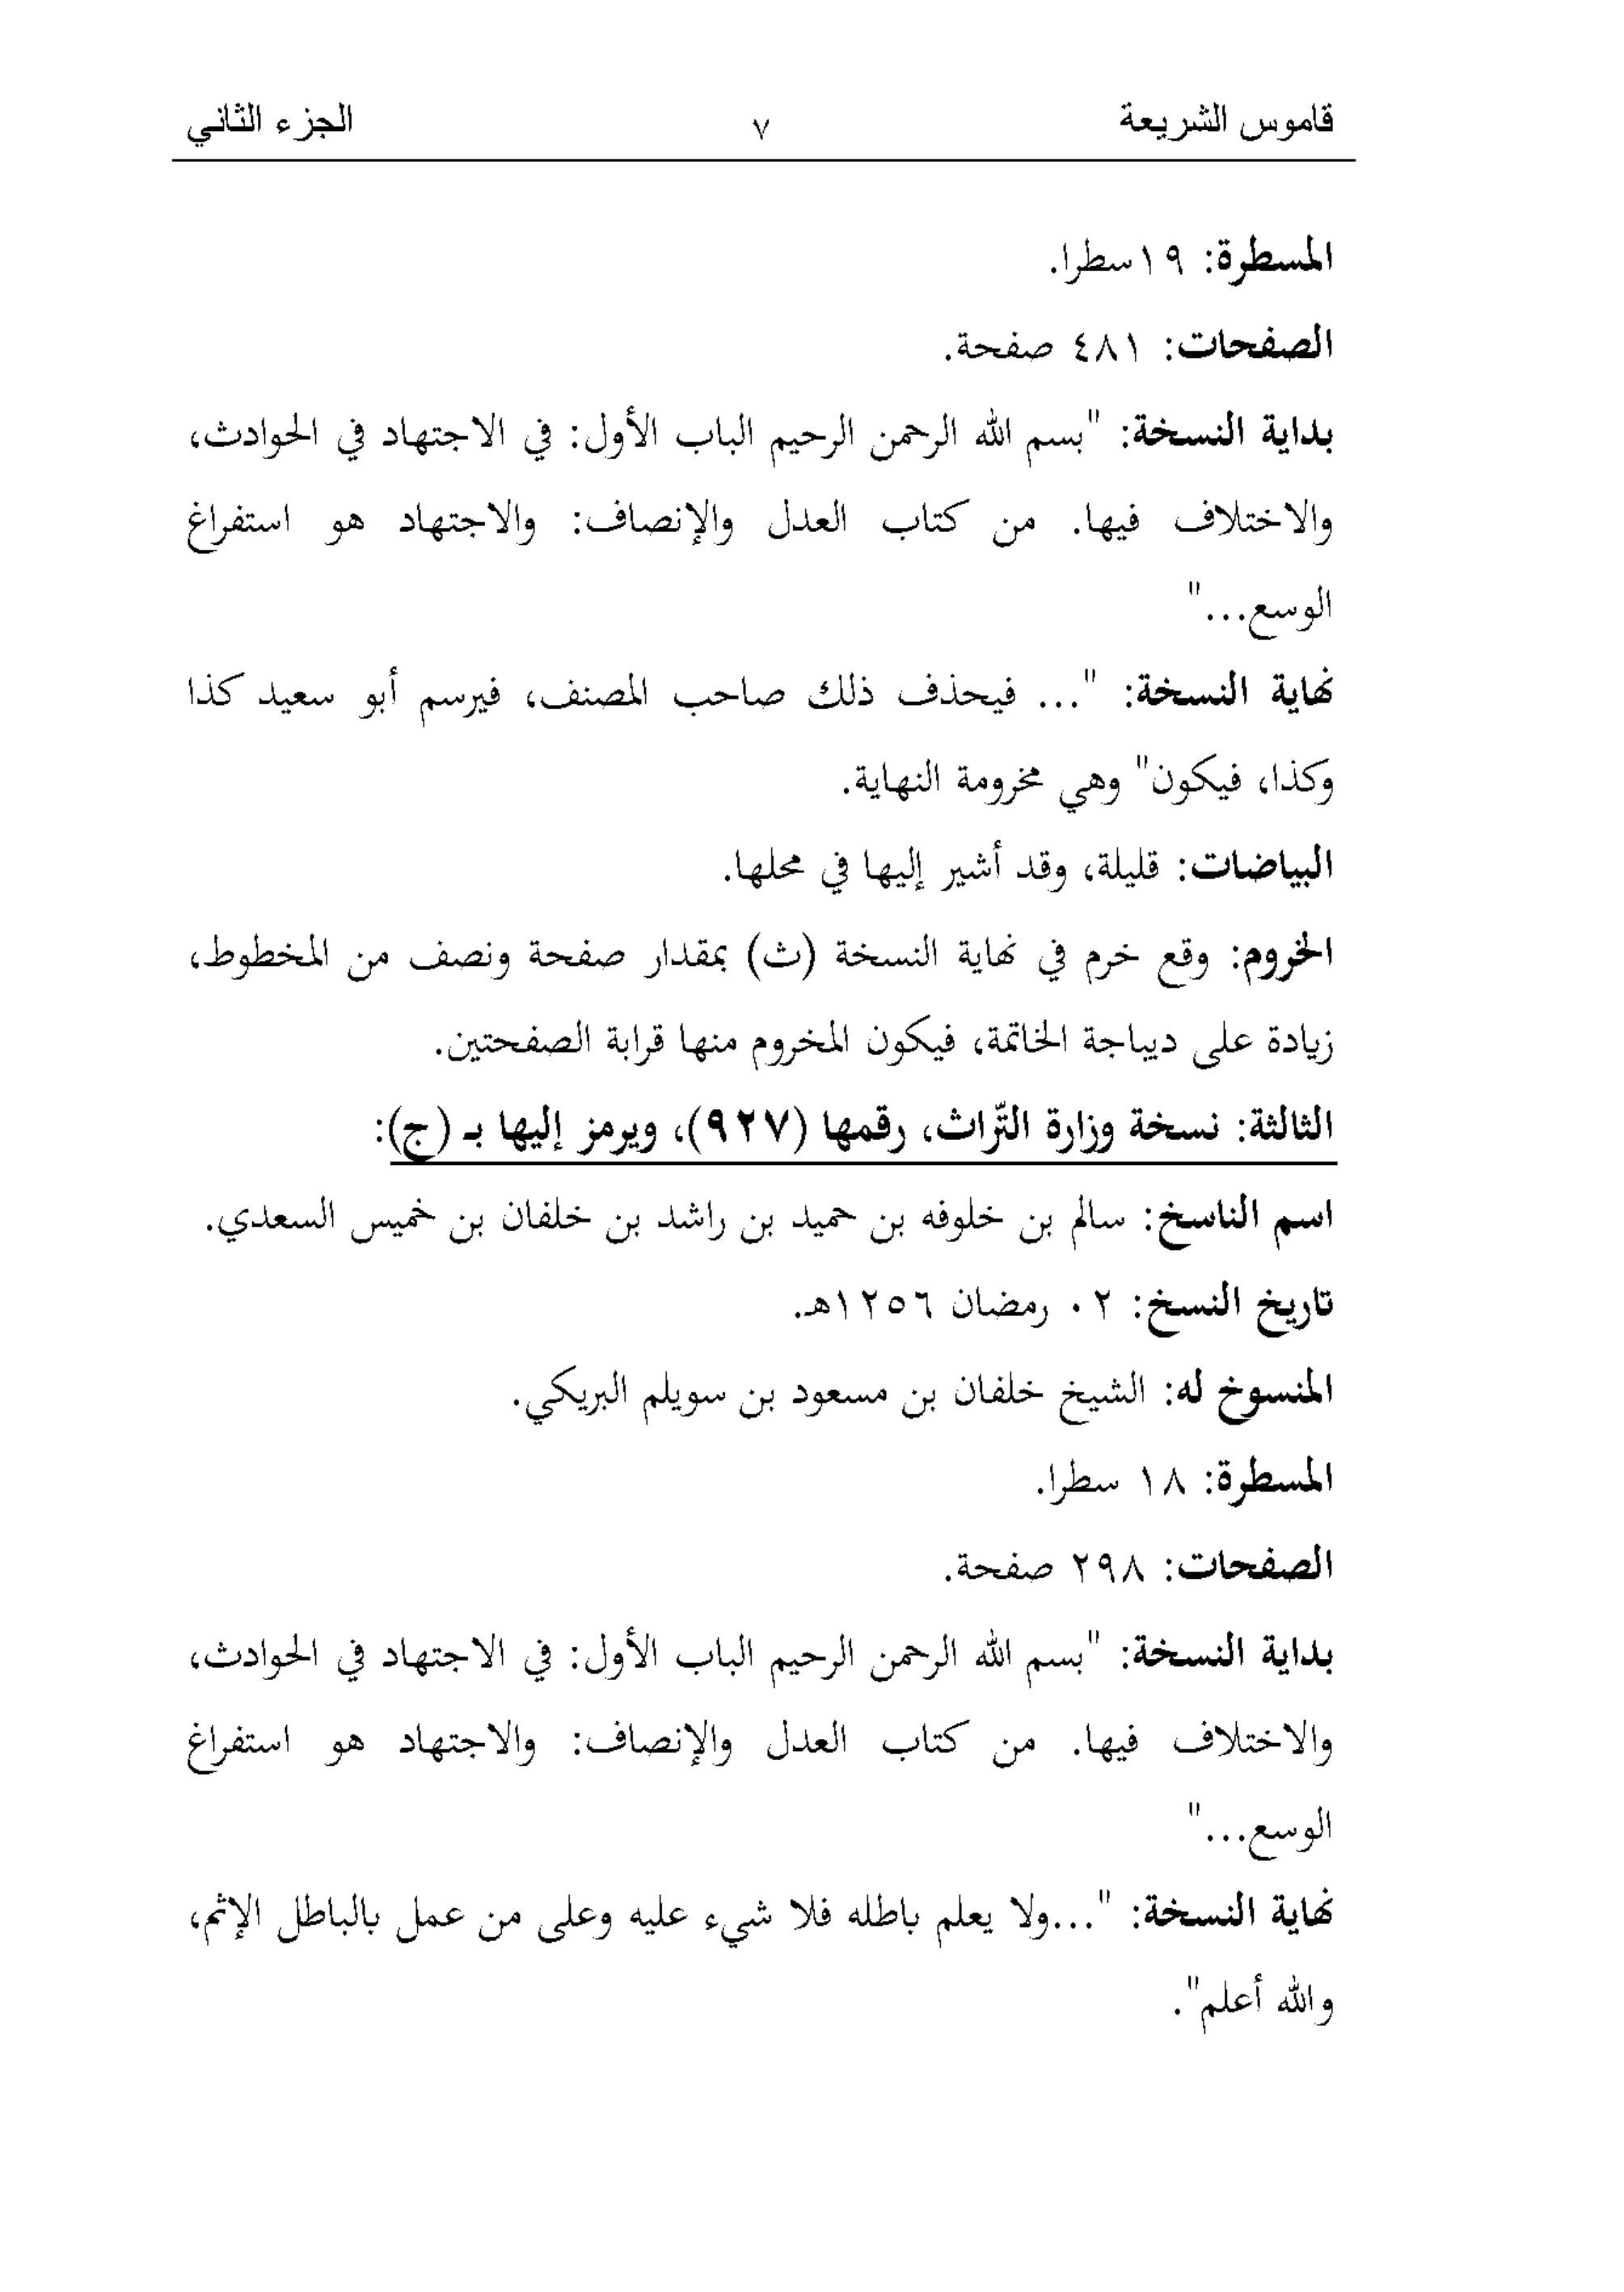 قاموس الشريعة ٧ الجزء الثاني
المسطرة: ١٩سطرا.
الصفحات: ٤٨١ صفحة.
بداية النسخة: "بسم الله الرحمن الرحيم الباب الأول: في الاجتهاد في الحوادث،
والاختلاف فيها. من كتاب العدل والإنصاف: والاجتهاد هو استفراغ
الوسع..."
نهاية النسخة: "... فيحذف ذلك صاحب المصنف، فيرسم أبو سعيد كذا
وكذا، فيكون" وهي مخرومة النهاية.
البياضات: قليلة، وقد أشير إليها في محلها.
الخروم: وقع خرم في نهاية النسخة (ث) بمقدار صفحة ونصف من المخطوط،
زيادة على ديباجة الخاتمة، فيكون المخروم منها قرابة الصفحتين.
الثالثة: نسخة وزارة التّراث، رقمها (٩٢٧)، ويرمز إليها بـ (ج):
اسم الناسخ: سالم بن خلوفه بن حميد بن راشد بن خلفان بن خميس السعدي.
تاريخ النسخ: ٠٢ رمضان ١٢٥٦هـ.
المنسوخ له: الشيخ خلفان بن مسعود بن سويلم البريكي.
المسطرة: ١٨ سطرا.
الصفحات: ٢٩٨ صفحة.
بداية النسخة: "بسم الله الرحمن الرحيم الباب الأول: في الاجتهاد في الحوادث،
والاختلاف فيها. من كتاب العدل والإنصاف: والاجتهاد هو استفراغ
الوسع..."
نهاية النسخة: "...ولا يعلم باطله فلا شيء عليه وعلى من عمل بالباطل الإثم،
والله أعلم".